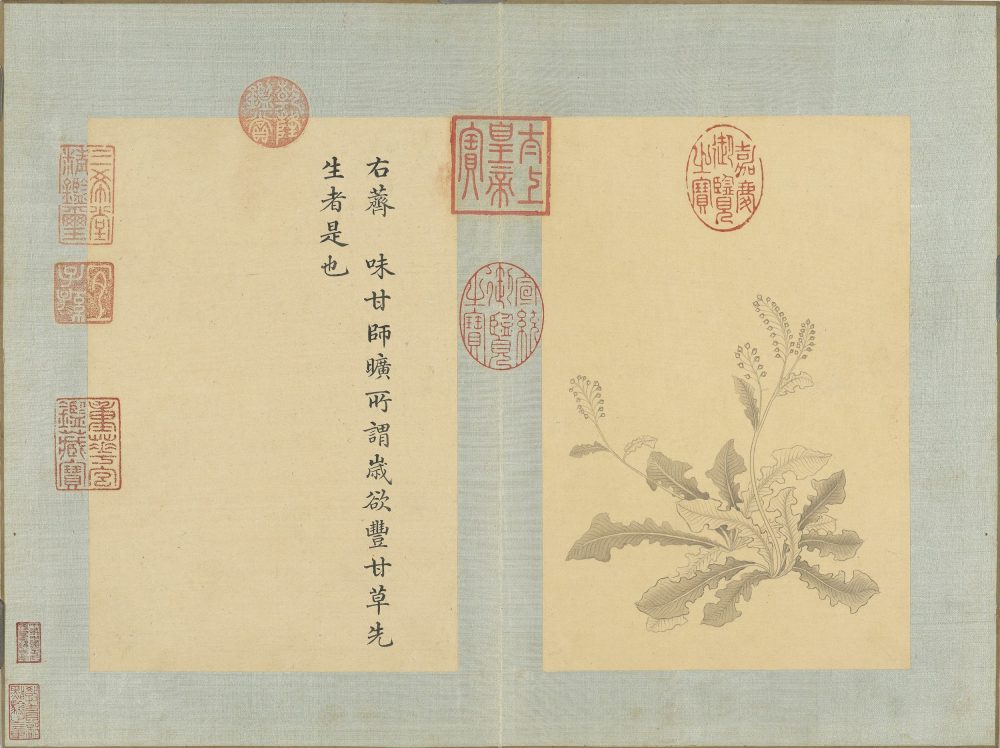 嘉慶
御覽
之寶
太上
皇帝
寶
宣統
御覽
之寶
右薺　味甘師曠所謂歲欲豐甘草先
生者是也
乾隆
鑑賞
三希堂
精鑑璽
宜
子孫
重華宮
鑑藏寶